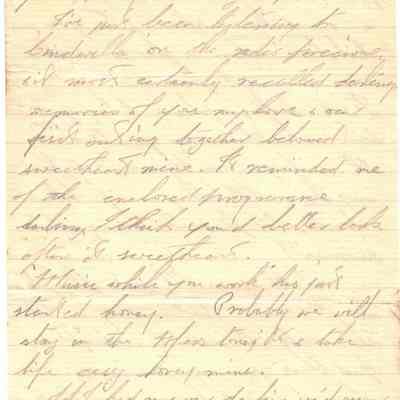 I've just been listening to
Cinderella on the radio precious,
it most certainly recalled darling
memories of you my love & our
first outing together beloved
sweetheart mine. It reminded me
of the enclosed programme
darling, I think you'd better look
after it sweetheart.
"Music while you work" has just
started honey. Probably we will
stay in the Mess tonight & take
life easy honey mine.